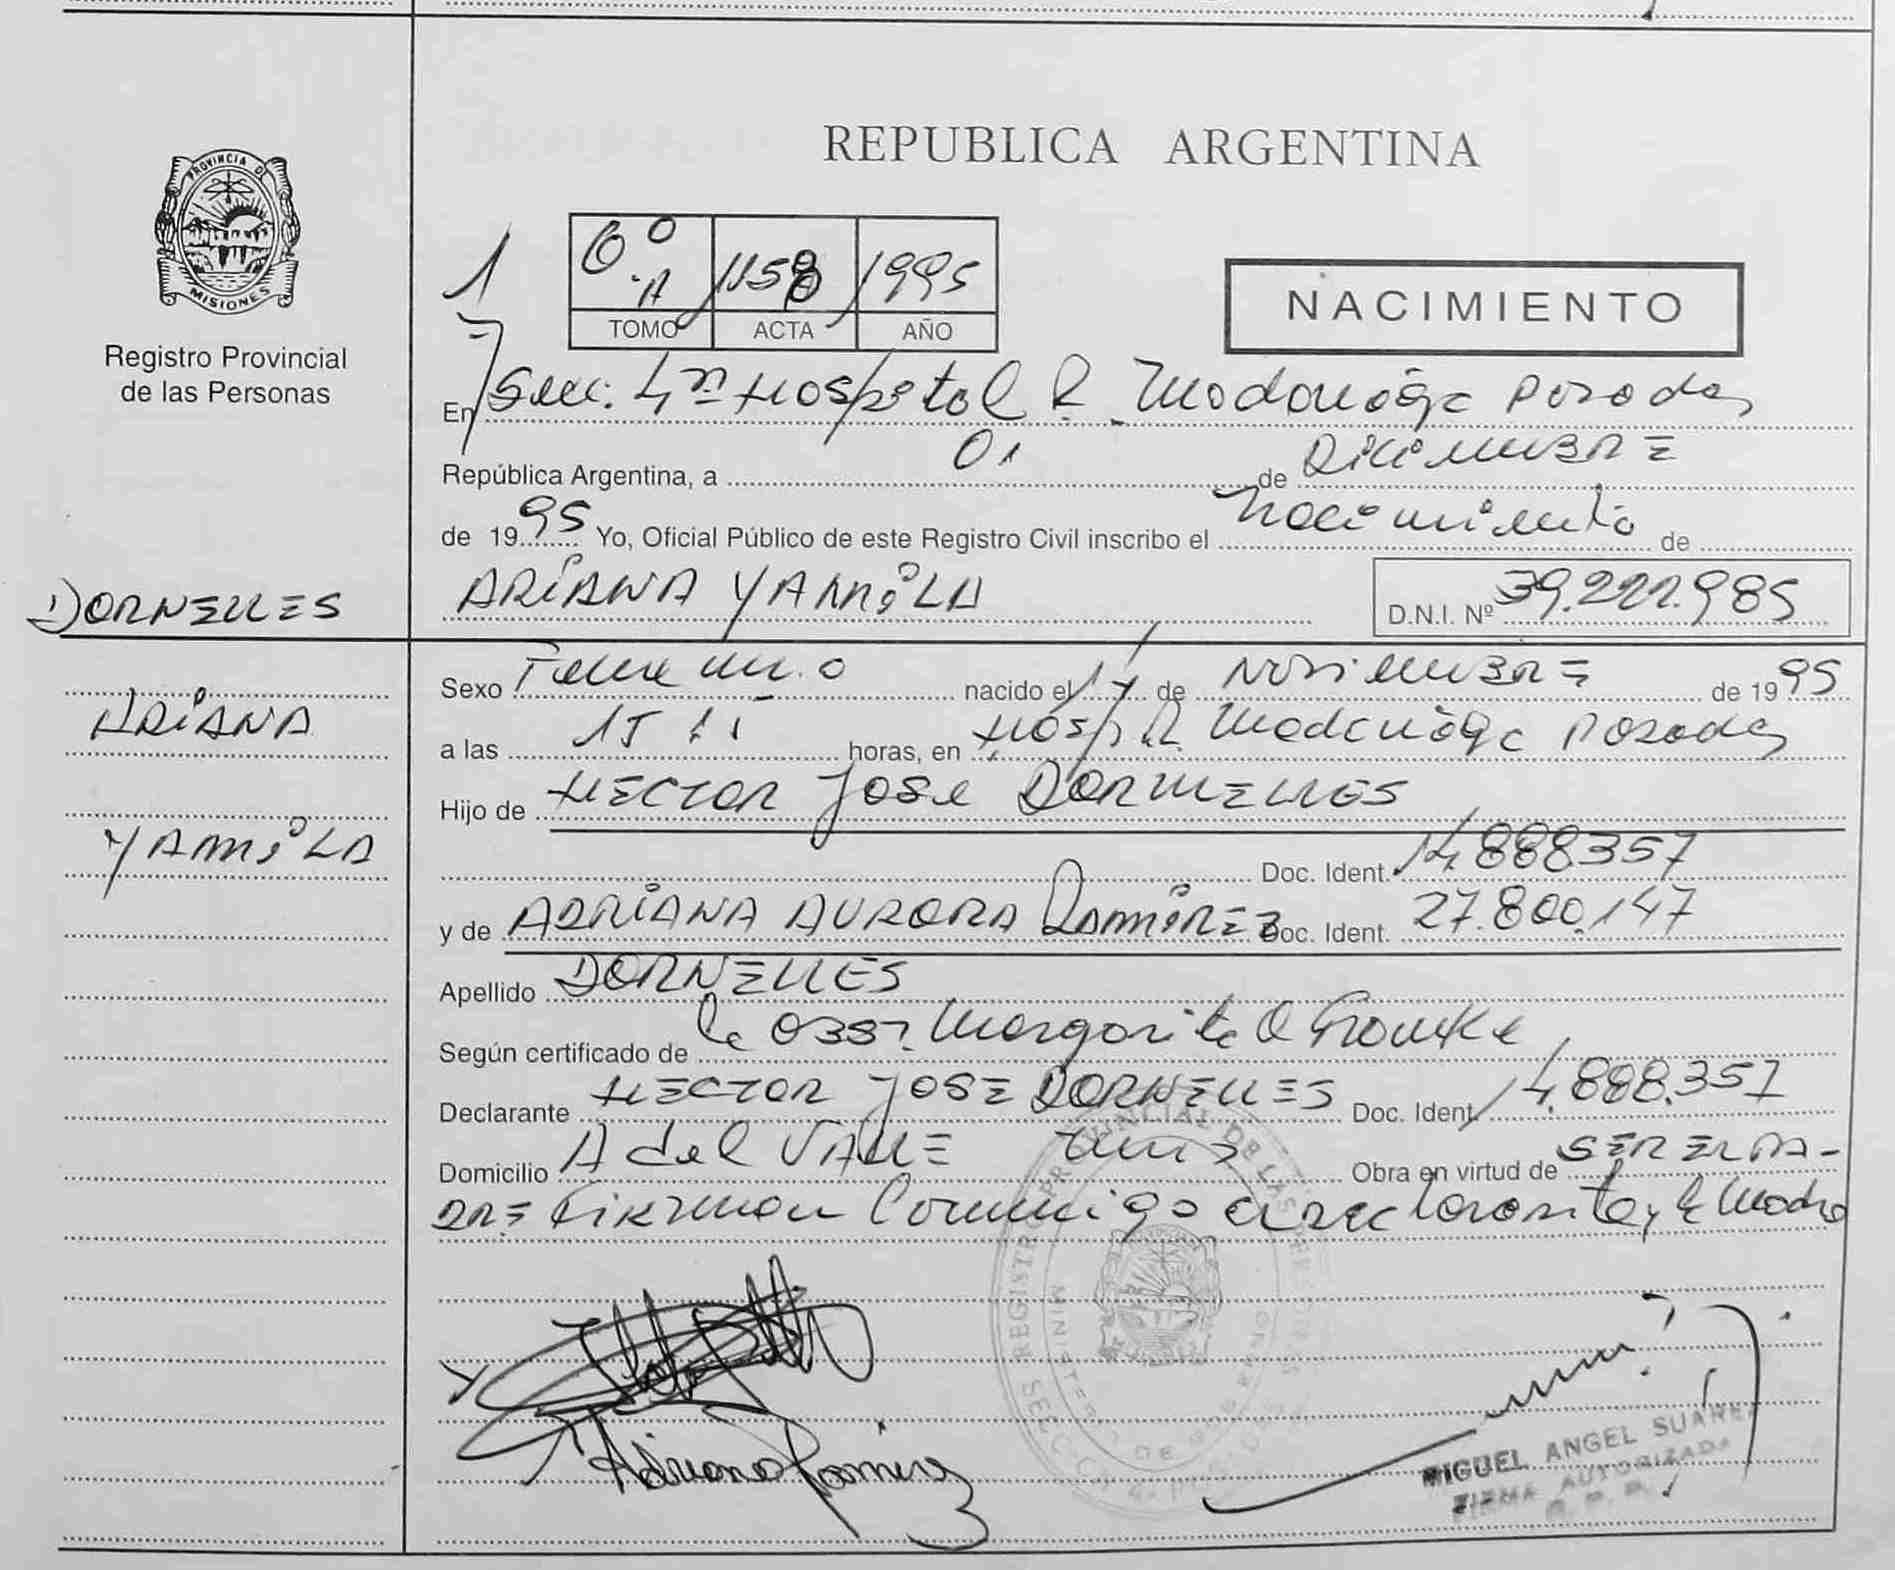 REPUBLICA ARGENTINA
PROVINCIA DE
MISIONES
Registro Provincial
de las Personas
1
6º A 1158 1995
TOMO ACTA AÑO
NACIMIENTO
En Secc. 4ª Hospital R. Madariaga Posadas
República Argentina, a 01 de DICIEMBRE
de 1995 Yo, Oficial Público de este Registro Civil inscribo el Nacimiento de
DORNELLES
ARIANA YAMILA
D.N.I. Nº 39.222.985
Sexo Femenino nacido el 17 de NOVIEMBRE de 1995
ARIANA
a las horas, en Hosp. R. Madariaga Posadas
Hijo de HECTOR JOSE DORNELLES
YAMILA
Doc. Ident. 14.888.357
y de ADRIANA AURORA RAMIREZ Doc. Ident. 27.800.147
Apellido DORNELLES
Según certificado de la Obst. Margarita
Declarante HECTOR JOSE DORNELLES Doc. Ident. 14.888.357
Domicilio A del VALLE Obra en virtud de SER EL PA-
DRE Firman Conmigo el declarante y la Madre
Adriana Ramirez
MIGUEL ANGEL SUAREZ
FIRMA AUTORIZADA
R. P. P.